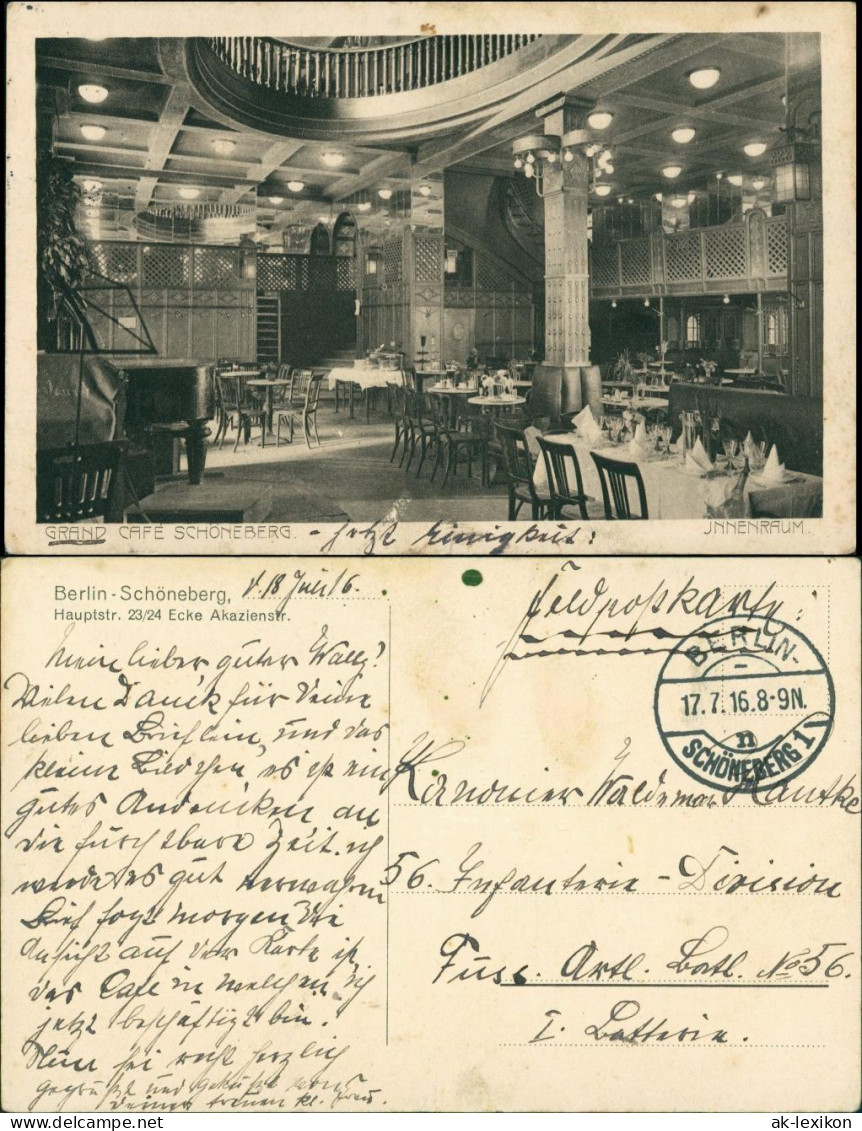 GRAND CAFÉ SCHÖNEBERG. - jetzt Einigkeit: JNNENRAUM.
Berlin-Schöneberg, d. 18 Juli 16.
Hauptstr. 23/24 Ecke Akazienstr.
Feldpostkarte:
BERLIN-
17.7.16.8-9N.
n
SCHÖNEBERG 1
Mein lieber guter Wally!
Vielen Danck für Deine
lieben Brieflein, und das
kleine Bildchen, es ist ein
gutes Andencken an
die furchtbare Zeit. ich
werde es gut verwahren
Brief folgt morgen Die
Ansicht auf der Karte ist
das Café in welchen ich
jetzt beschäftigt bin.
Nun sei recht herzlich
gegrüßt und geküßt von
Deiner treuen kl. Frau.
Kanonier Waldemar Hantke
56. Infanterie-Division
Fuss. Artl. Batl. No 56.
I. Batterie.
ak-lexikon